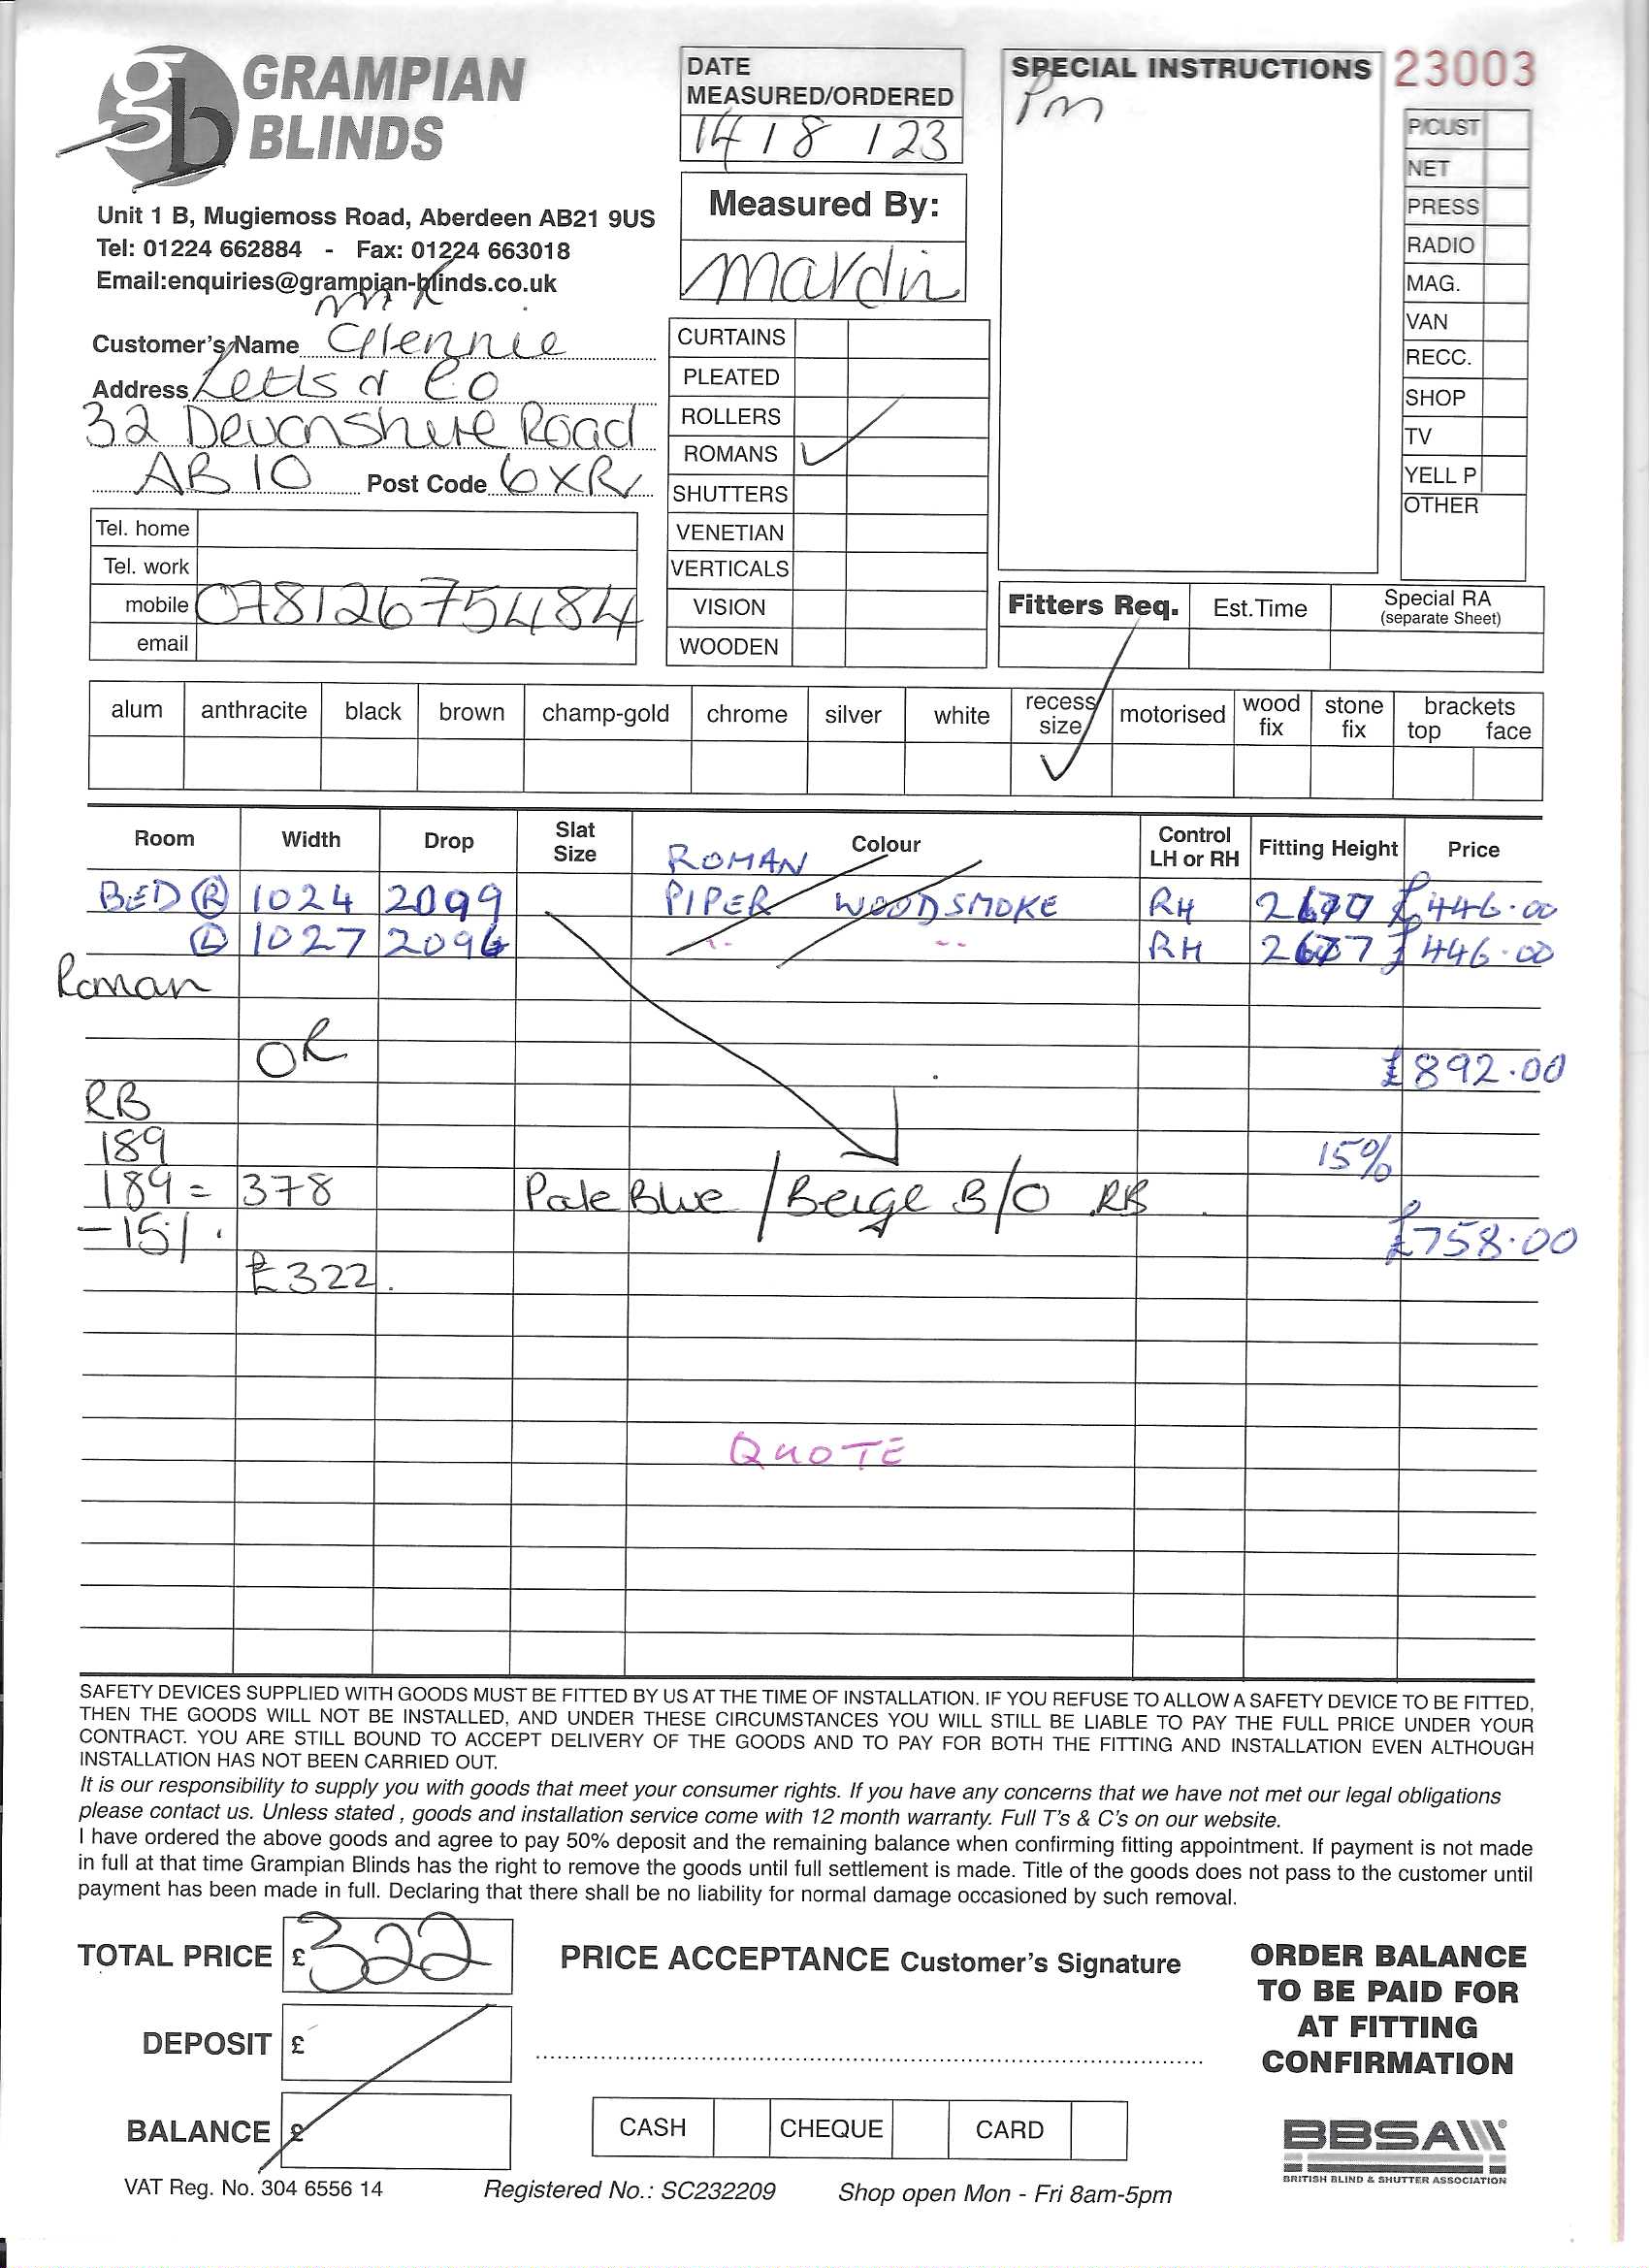 GRAMPIAN
BLINDS
Unit 1 B, Mugiemoss Road, Aberdeen AB21 9US
Tel: 01224 662884 - Fax: 01224 663018
Email:enquiries@grampian-blinds.co.uk
DATE
MEASURED/ORDERED
14 / 8 / 23
Measured By:
SPECIAL INSTRUCTIONS
Pm
23003
P/CUST
NET
PRESS
RADIO
MAG.
VAN
RECC.
SHOP
TV
YELL P
OTHER
Customer's Name Glennie
Address
32 Devonshire Road
AB 10 Post Code 6XR
Tel. home
Tel. work
mobile 07812675484
email
CURTAINS
PLEATED
ROLLERS
ROMANS ✓
SHUTTERS
VENETIAN
VERTICALS
VISION
WOODEN
Fitters Req. Est.Time Special RA
(separate Sheet)
alum anthracite black brown champ-gold chrome silver white recess size motorised wood fix stone fix brackets top face
✓
Room Width Drop Slat Size Colour Control LH or RH Fitting Height Price
ROMAN
BED Ⓡ 1024 2099 PIPER WOODSMOKE RH £446.00
Ⓛ 1027 2096 " " RH £446.00
Roman
OR £892.00
RB
189 15%
189 = 378 Pale Blue / Beige B/O RB
-15% £758.00
£322.
QUOTE
SAFETY DEVICES SUPPLIED WITH GOODS MUST BE FITTED BY US AT THE TIME OF INSTALLATION. IF YOU REFUSE TO ALLOW A SAFETY DEVICE TO BE FITTED,
THEN THE GOODS WILL NOT BE INSTALLED, AND UNDER THESE CIRCUMSTANCES YOU WILL STILL BE LIABLE TO PAY THE FULL PRICE UNDER YOUR
CONTRACT. YOU ARE STILL BOUND TO ACCEPT DELIVERY OF THE GOODS AND TO PAY FOR BOTH THE FITTING AND INSTALLATION EVEN ALTHOUGH
INSTALLATION HAS NOT BEEN CARRIED OUT.
It is our responsibility to supply you with goods that meet your consumer rights. If you have any concerns that we have not met our legal obligations
please contact us. Unless stated , goods and installation service come with 12 month warranty. Full T's & C's on our website.
I have ordered the above goods and agree to pay 50% deposit and the remaining balance when confirming fitting appointment. If payment is not made
in full at that time Grampian Blinds has the right to remove the goods until full settlement is made. Title of the goods does not pass to the customer until
payment has been made in full. Declaring that there shall be no liability for normal damage occasioned by such removal.
TOTAL PRICE £ 322
DEPOSIT £
BALANCE £
PRICE ACCEPTANCE Customer's Signature
CASH CHEQUE CARD
ORDER BALANCE
TO BE PAID FOR
AT FITTING
CONFIRMATION
BBSA
BRITISH BLIND & SHUTTER ASSOCIATION
VAT Reg. No. 304 6556 14 Registered No.: SC232209 Shop open Mon - Fri 8am-5pm